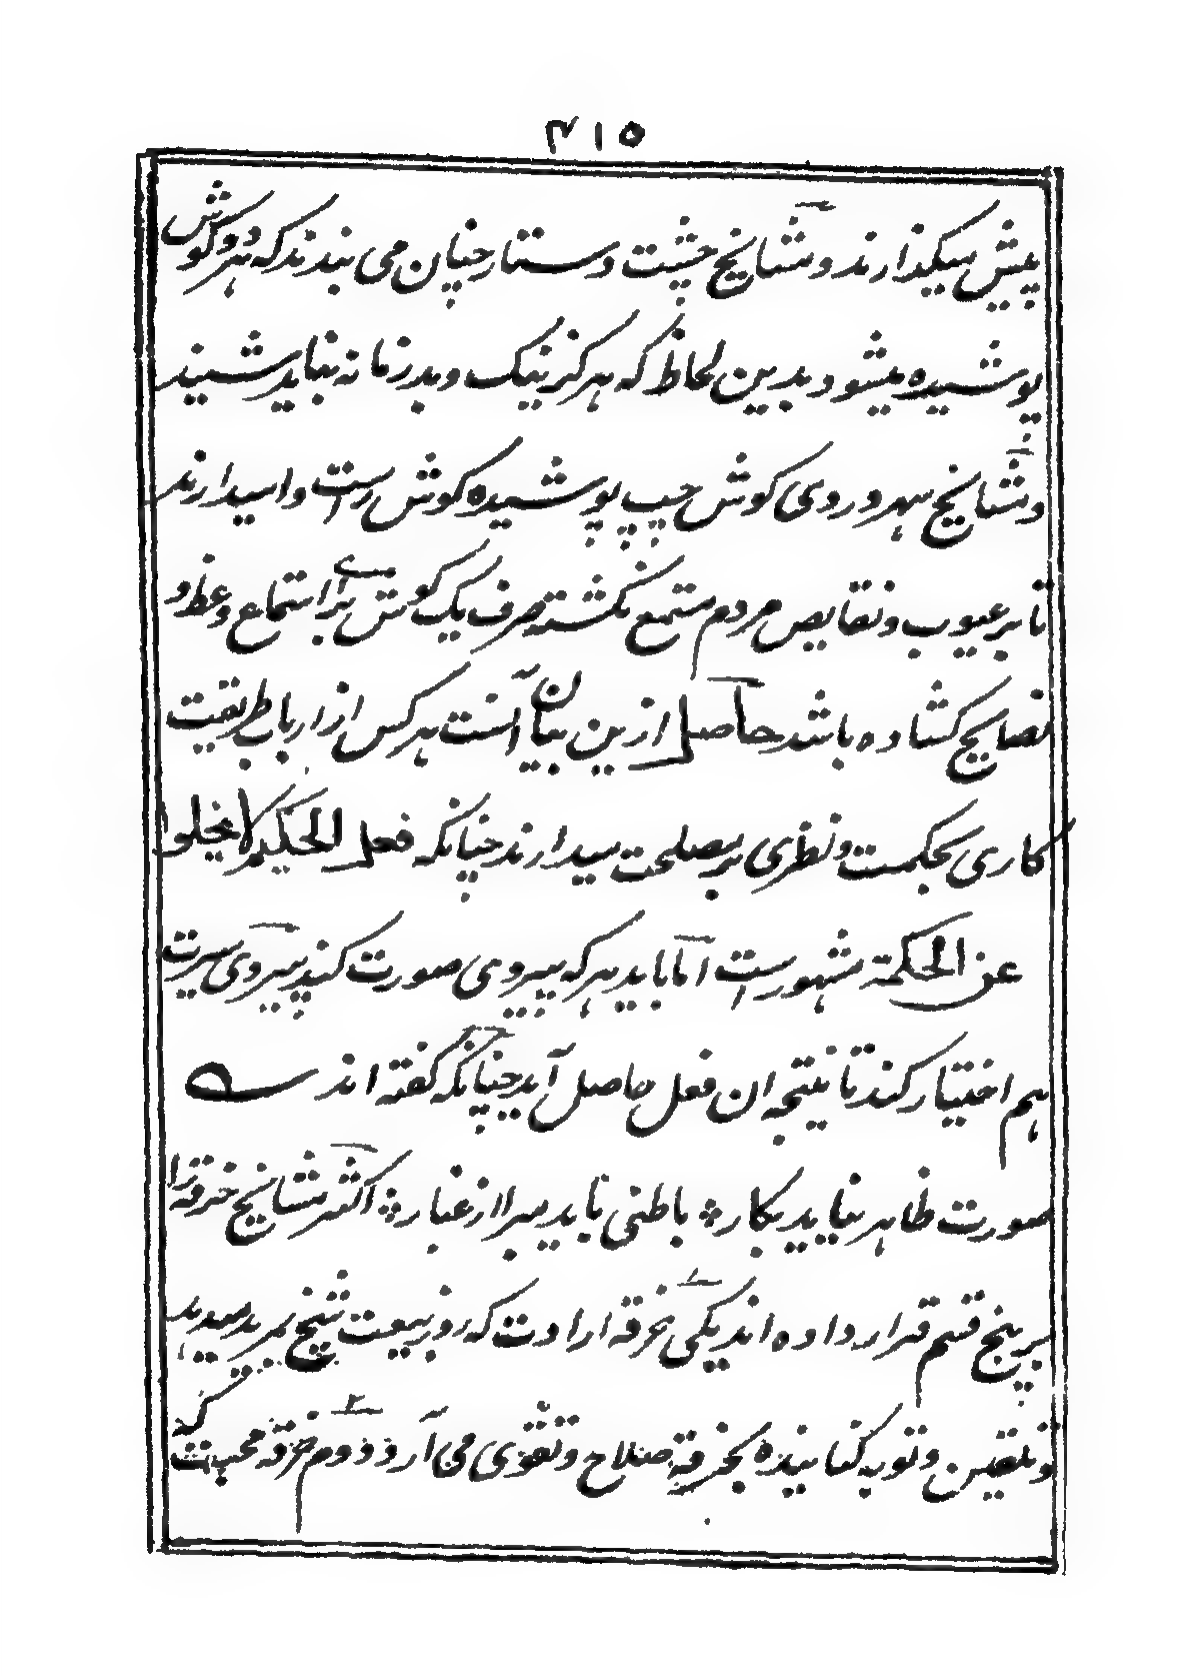 ۳۱۵
پیش میکذارند و مشایخ چشت دستار چنان می بندند که هر دو کوش
پوشیده میشود بدین لحاظ که هرکز نیک و بد زمانه نباید شنید
و مشایخ سهروردی کوش چپ پوشیده کوش راست وا میدارند
تا بر عیوب و نقایص مردم مستمع نکشته صرف یک کوش برای استماع وعظ و
نصایح کشاده باشد حاصل ازین بیان آنست هر کس از ارباب طریقت
کاری بحکمت و نظری بر مصلحت میدارند چنانکه فعل الحکیم لا یخلوا
عن الحکمة مشهور است اما باید هر که پیروی صورت کند پیروی سیرت
هم اختیار کند تا نتیجه ان فعل حاصل آید چنانکه گفته اند
صورت ظاهر نیاید بکار ؞ باطنی باید مبرا از غبار ؞ اکثر مشایخ خرقه را
بر پنج قسم قرار داده اند یکی خرقه ارادت که روز بیعت شیخ بمرید میدهد
و تلقین و توبه کنانیده بخرقه صلاح و تقوی می آرد دوم خرقه محبت که